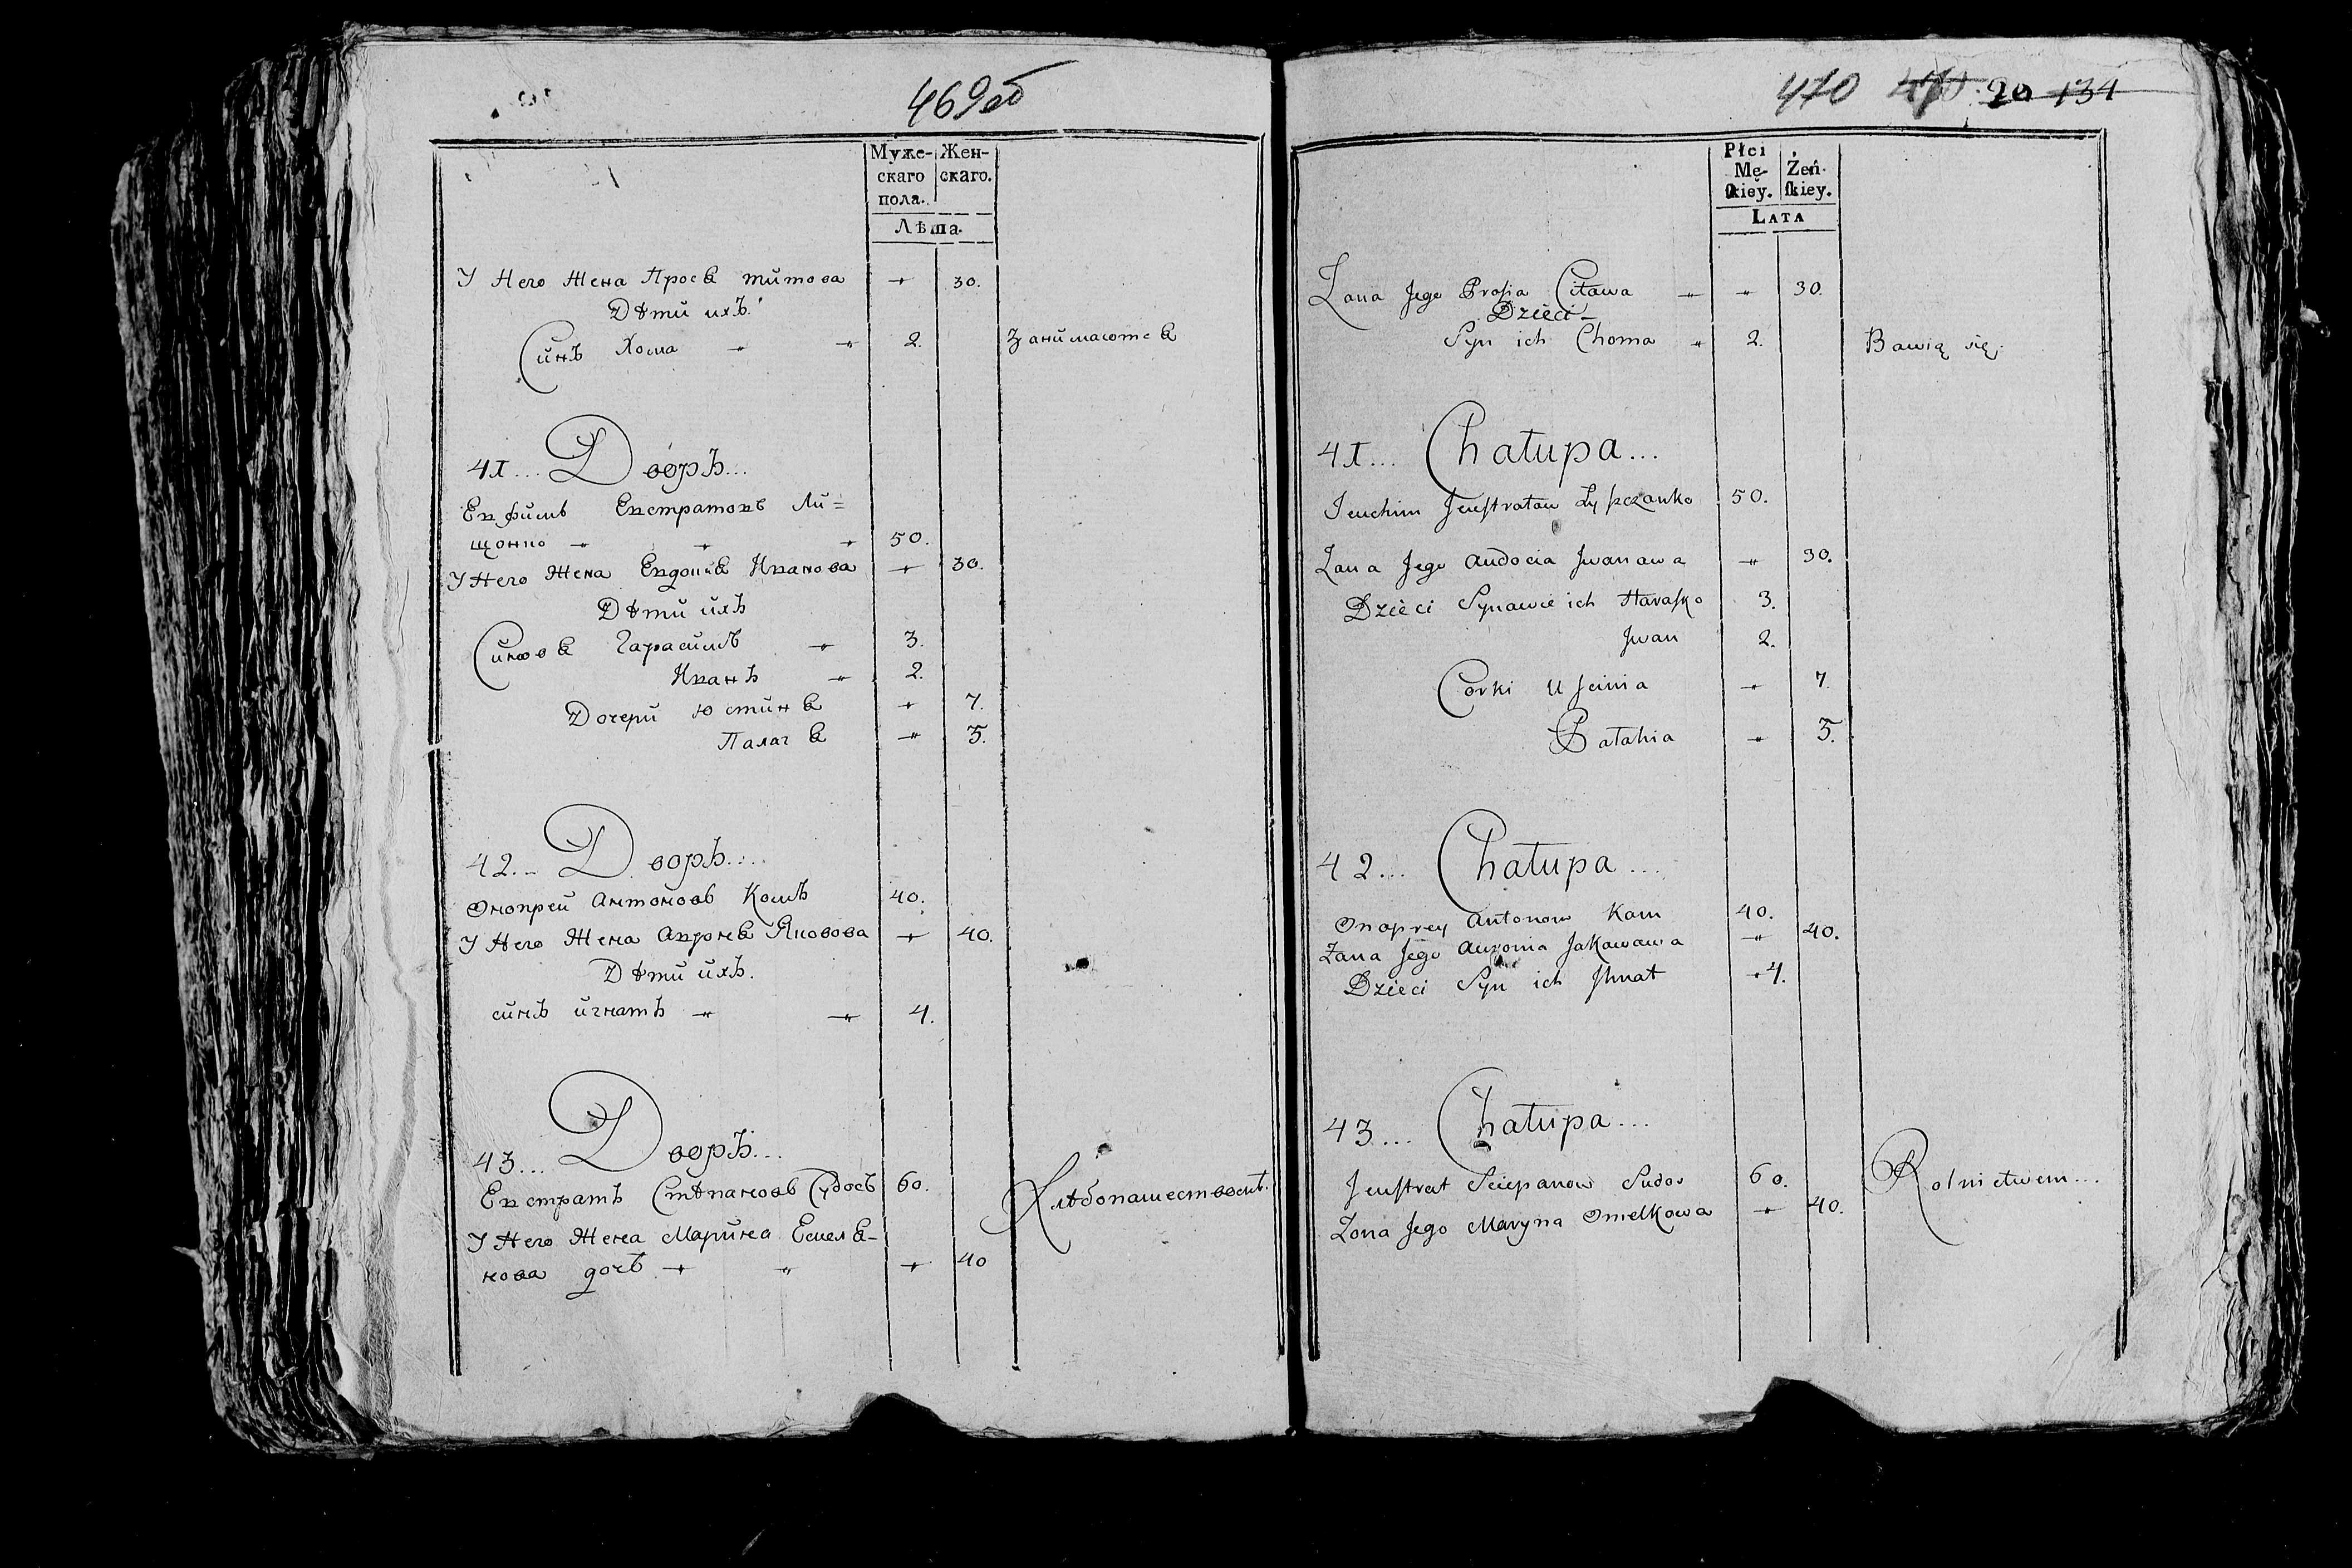 469об
Муже- Жен-
скаго скаго.
пола.
Лѣта.
У Него Жена Прося Титова 30.
Дѣти ихъ.
Синъ Хома 2. Занимаются
41... Дворъ...
Евфимъ Евстратовъ Ли=
щонко 50.
У Него Жена Евдокия Иванова 30.
Дѣти ихъ
Синовя Гарасимъ 3.
Иванъ 2.
Дочери Юстиня 7.
Палагя 5.
42... Дворъ....
Онопрей Антоновъ Комъ 40.
У Него Жена Авроня Яковова 40.
Дѣти ихъ.
синъ игнатъ 4.
43... Дворъ...
Евстратъ Стѣпановъ Судосъ 60. Хлѣбопашествомъ.
У Него Жена Марина Емеля-
нова дочъ 40
470 20 134
Płci
Mę- Żeń-
ſkiey. ſkiey.
LATA
Żona Jego Prosia Citawa 30.
Dzieci
Syn ich Choma 2. Bawią się.
41... Chałupa...
Jeuchim Jeuſtratow Lyſzczanko 50.
Żona Jego Audocia Jwanawa 30.
Dzieci Synawie ich Haraſko 3.
Jwan 2.
Corki Uſcinia 7.
Pałahia 5.
42... Chałupa...
Onoprey Antonow Kom 40.
Żona Jego Auronia Jakawawa 40.
Dzieci Syn ich Jhnat 4.
43... Chałupa...
Jeuſtrat Sciepanow Sudos 60. Rolnictwem...
Żona Jego Maryna Omelkowa 40.